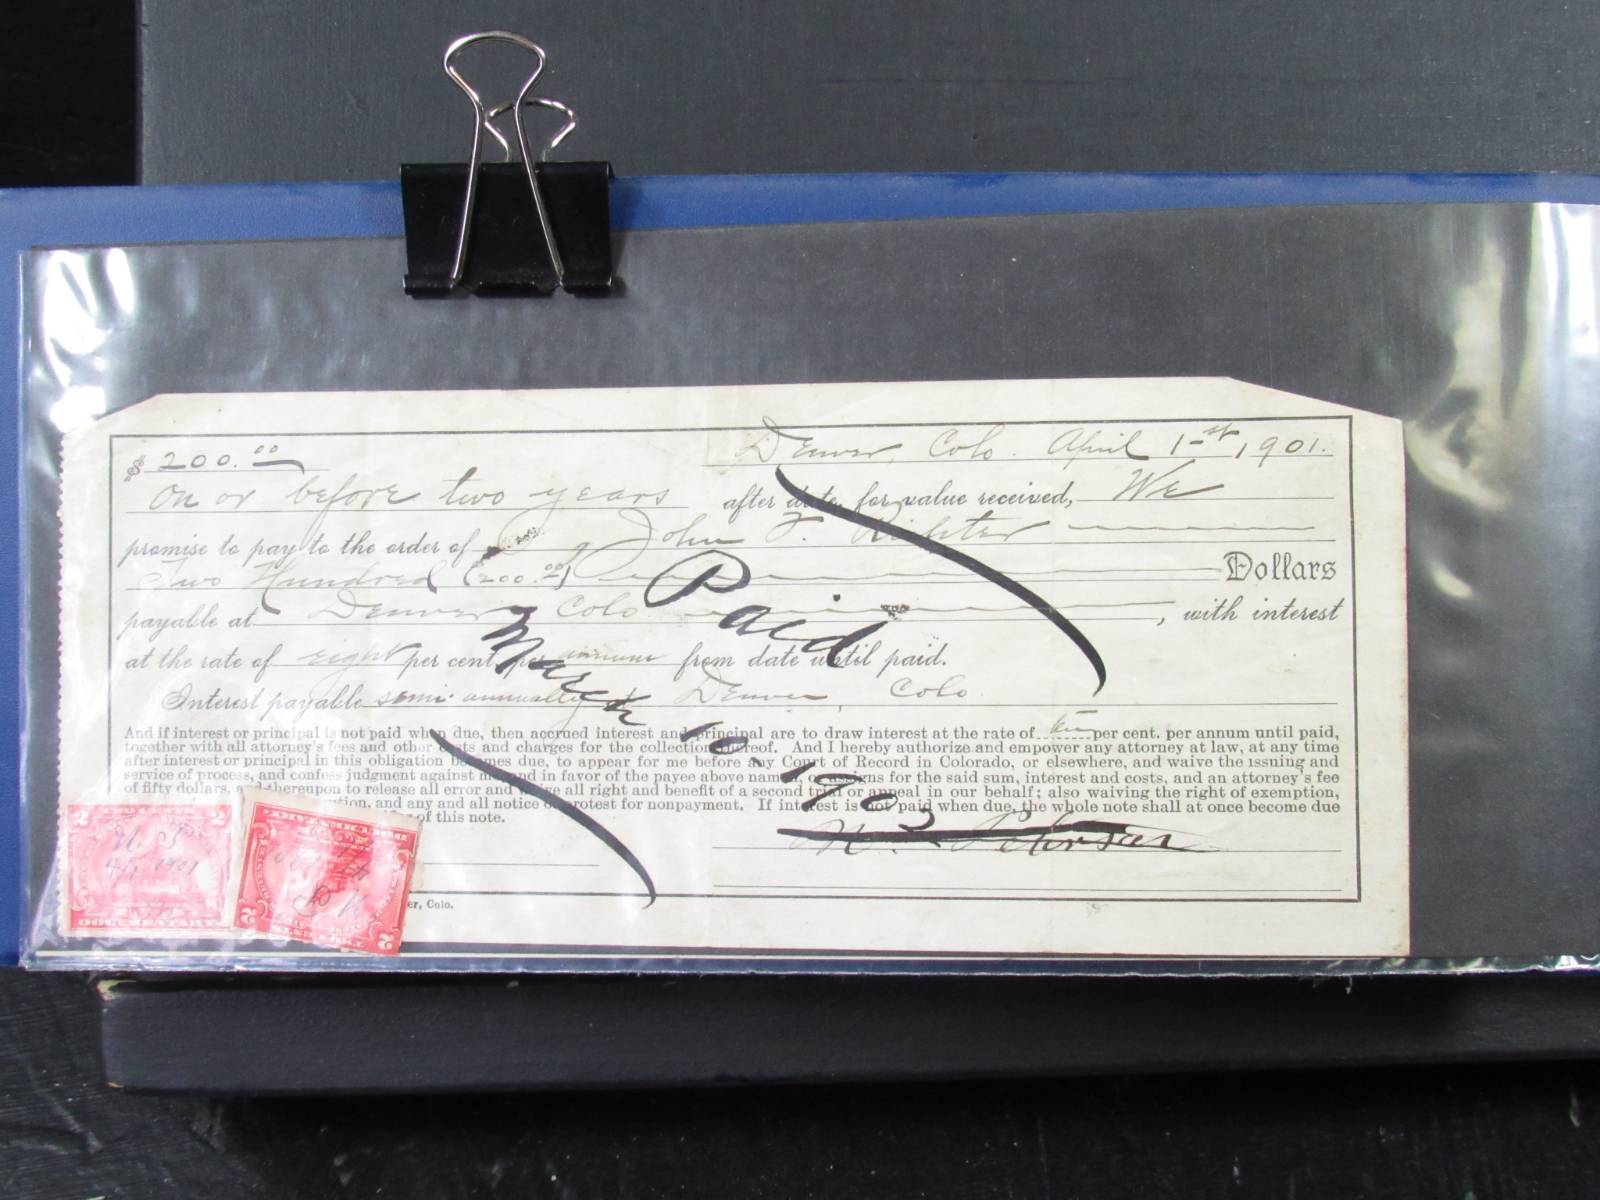 $ 200.00 Denver, Colo. April 1st, 1901.
on or before two years after date, for value received, We
promise to pay to the order of John F. Richter
Two Hundred (200.00) Dollars
payable at Denver Colo , with interest
at the rate of eight per cent. per annum from date until paid.
Interest payable semi-annually at Denver, Colo.
And if interest or principal is not paid when due, then accrued interest and principal are to draw interest at the rate of ten per cent. per annum until paid,
together with all attorney's fees and other costs and charges for the collection thereof. And I hereby authorize and empower any attorney at law, at any time
after interest or principal in this obligation becomes due, to appear for me before any Court of Record in Colorado, or elsewhere, and waive the issuing and
service of process, and confess judgment against me and in favor of the payee above named, or assigns for the said sum, interest and costs, and an attorney's fee
of fifty dollars, and thereupon to release all error and waive all right and benefit of a second trial or appeal in our behalf; also waiving the right of exemption,
and any and all notice or protest for nonpayment. If interest is not paid when due, the whole note shall at once become due
of this note.
Paid
March 10. 1902
Peterson
er, Colo.
TWO CENTS
2 2
N. P.
4/1 1901
DOCUMENTARY
DOCUMENTARY
N P
TWO CENTS
2